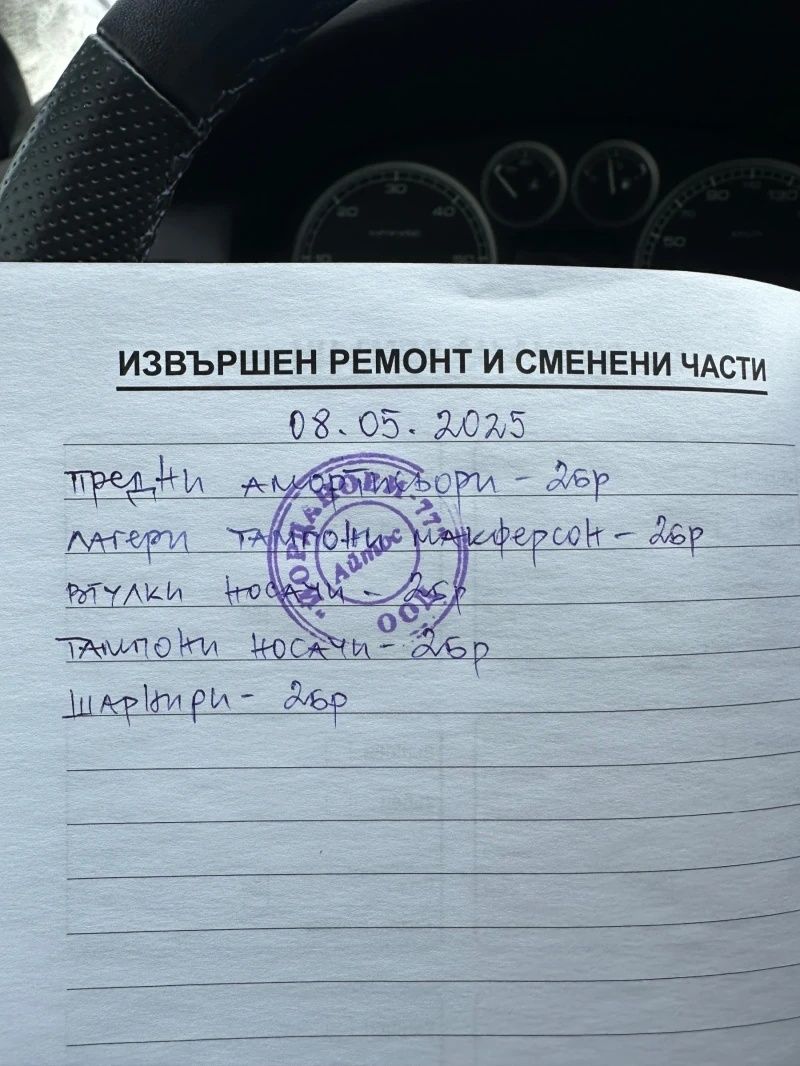 20
30
40
50
90
ИЗВЪРШЕН РЕМОНТ И СМЕНЕНИ ЧАСТИ
08.05.2025
ПРЕДНИ АМОРТИСЬОРИ - 2БР
ЛАГЕРИ ТАМПОНИ МАКФЕРСОН - 2БР
ВТУЛКИ НОСАЧИ - 2БР
ТАМПОНИ НОСАЧИ - 2БР
ШАРНИРИ - 2БР
Айтос
ООД